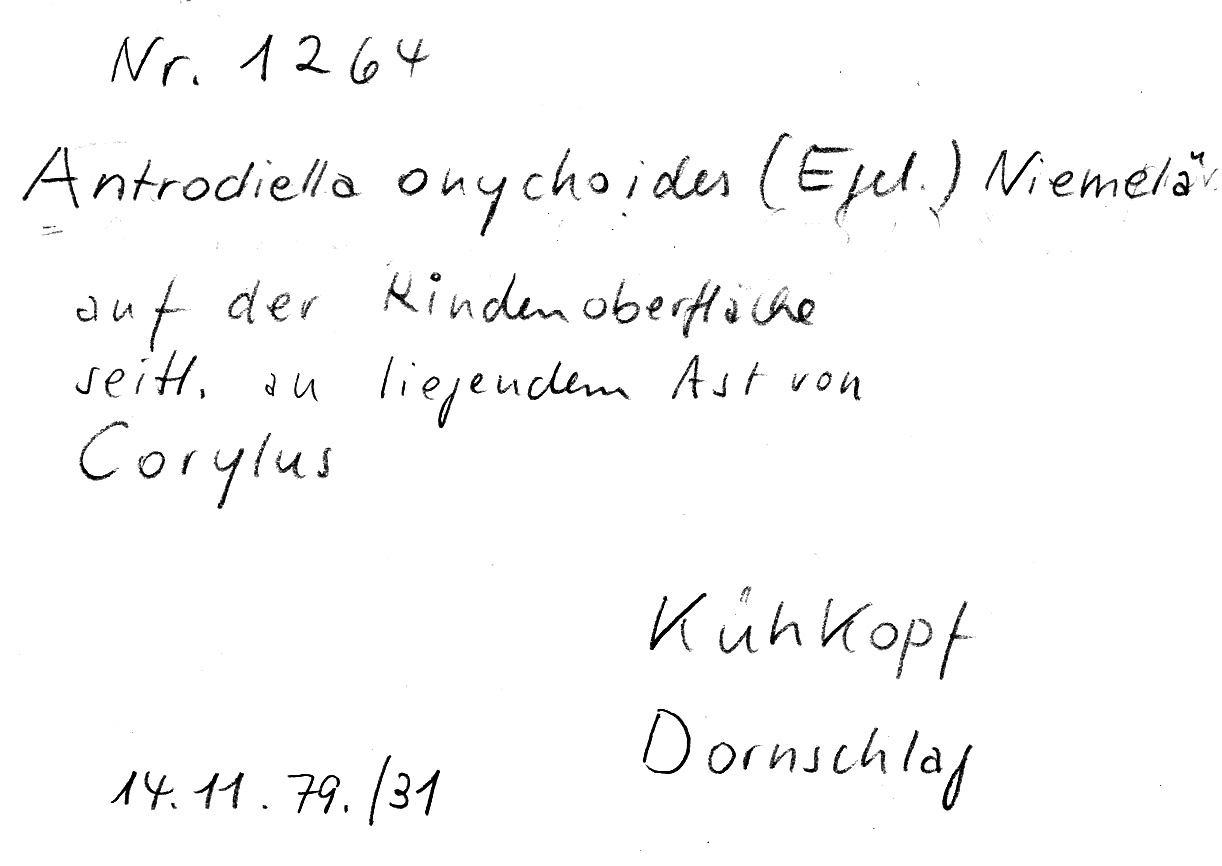 Nr. 1264
Antrodiella onychoides (Egel.) Niemelä
auf der Rindenoberfläche
seitl. an liegendem Ast von
Corylus
Kühkopf
Dornschlag
14.11.79./31